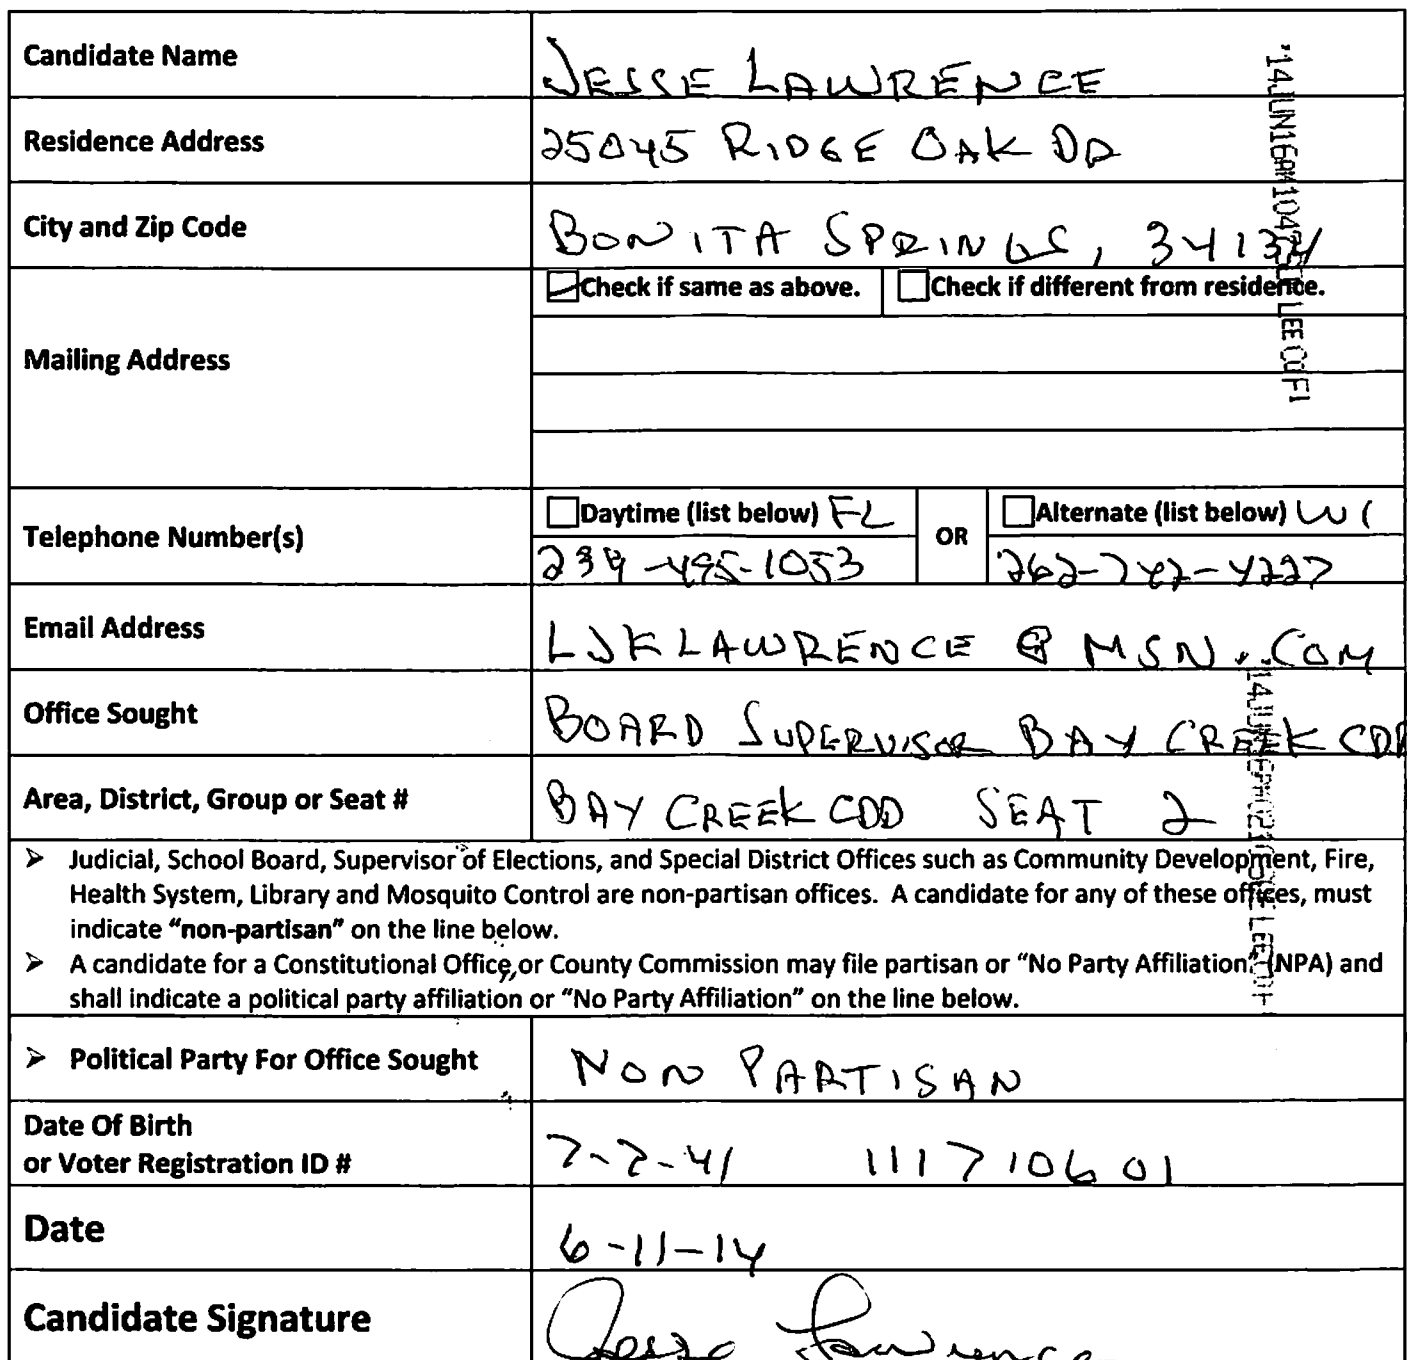 Candidate Name JESSE LAWRENCE
Residence Address 25045 RIDGE OAK DR
City and Zip Code BONITA SPRINGS, 34134
Check if same as above. Check if different from residence.
Mailing Address
Telephone Number(s) Daytime (list below) FL OR Alternate (list below) WI
239-495-1053 262-742-4227
Email Address LJKLAWRENCE @ MSN.COM
Office Sought BOARD SUPERVISOR BAY CREEK CDD
Area, District, Group or Seat # BAY CREEK CDD SEAT 2
➢ Judicial, School Board, Supervisor of Elections, and Special District Offices such as Community Development, Fire,
Health System, Library and Mosquito Control are non-partisan offices. A candidate for any of these offices, must
indicate “non-partisan” on the line below.
➢ A candidate for a Constitutional Office, or County Commission may file partisan or “No Party Affiliation” (NPA) and
shall indicate a political party affiliation or “No Party Affiliation” on the line below.
➢ Political Party For Office Sought NON PARTISAN
Date Of Birth
or Voter Registration ID # 7-7-41 111710601
Date 6-11-14
Candidate Signature Jesse Lawrence